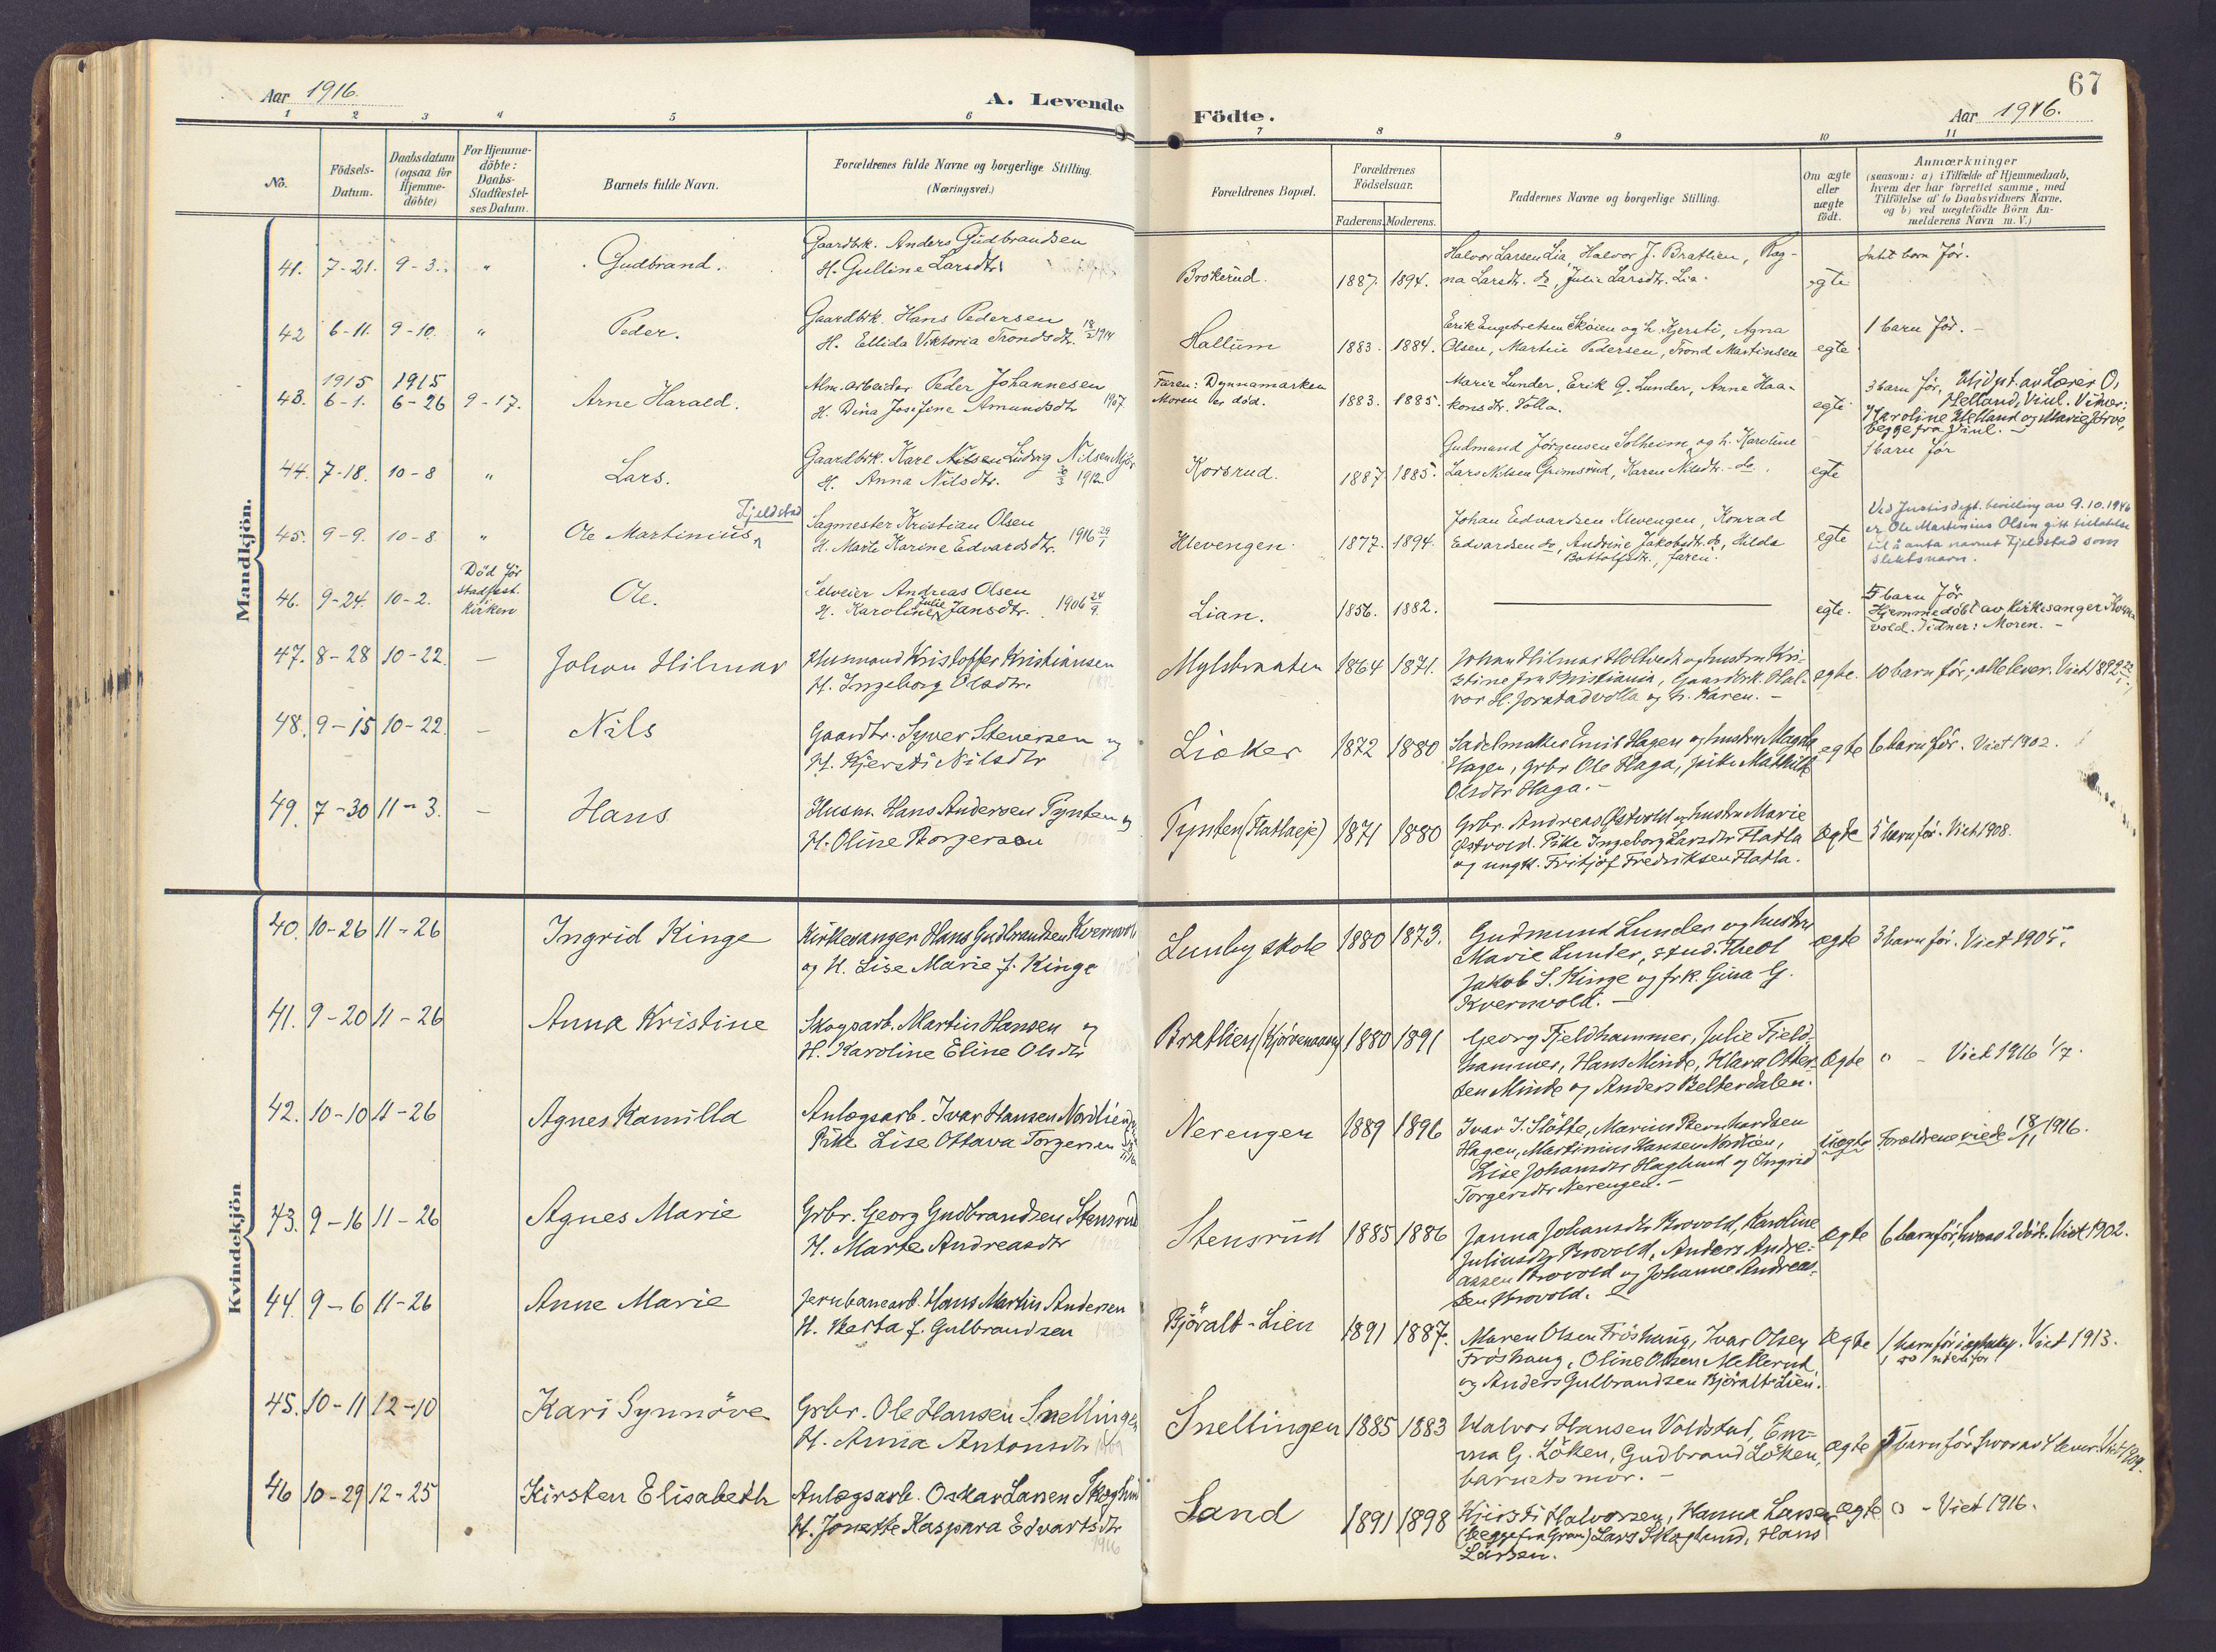 67
Aar 1916.
A. Levende
Födte.
Aar 1916.
1 2 3 4 5 6 7 8 9 10 11
No.
Födsels-
Datum.
Daabsdatum
(ogsaa for
Hjemme-
döbte)
For Hjemme-
döbte:
Daabs-
Stadfæstel-
ses Datum.
Barnets fulde Navn.
Forældrenes fulde Navne og borgerlige Stilling.
(Næringsvei.)
Forældrenes Bopæl.
Forældrenes
Födselsaar.
Faderens. Moderens.
Faddernes Navne og borgerlige Stilling.
Om ægte
eller
uægte
födt.
Anmærkninger
(saasom: a) i Tilfælde af Hjemmedaab,
hvem der har forrettet samme, med
Tilföielse af to Daabsvidners Navne,
og b) ved uægtefödte Börn An-
melderens Navn m. V.)
Mandkjön.
41. 7-21. 9-3. " Gudbrand.
Gaardbk. Anders Gudbrandsen
H. Gulline Larsdtr.
Brokerud. 1887. 1894.
Halvor Larsen Lia, Halvor J. Bratlien, Rag-
na Larsdtr. do, Julie Larsdtr. Lia.
egte
Intet barn för.
42 6-11. 9-10. " Peder.
Gaardbk. Hans Pedersen
H. Ellida Viktoria Trondsdtr. 1914
Hallum 1883. 1884.
Erik Engebretsen Sköien og h. Kjersti, Agna
Olsen, Martin Pedersen, Trond Martinsen
egte
1 barn för. -
43. 1915 6-1. 1915 6-26 9-17. Arne Harald.
Alm. arbeider Peder Johannesen
H. Dina Josefine Amundsdtr 1907
Faren: Dynnamarken
Moren er död.
1883. 1885.
Marie Lunder, Erik G. Lunder, Anne Haa-
konsdtr. Volla.
egte
3 barn för. Hjdpt. av Lærer O.
Helland, Viul. Vidner:
Karoline Helland og Marie Jörve,
begge fra Viul. -
44. 7-18. 10-8 " Lars.
Gaardbk. Karl Ludvig Nilsen Mjör
H. Anna Nilsdtr. 1912
Korsrud. 1887 1885.
Gudmund Jörgensen Solheim og h. Karoline
Lars Nilsen Grimsrud, Karen Nilsdtr. do.
egte
1 barn för
45. 9-9. 10-8. " Ole Martinius Fjeldstad
Sagmester Kristian Olsen
H. Marte Karine Edvardsdtr. 1916
Klevengen 1877. 1894.
Johan Edvardsen Klevengen, Konrad
Edvardsen do, Andrine Jakobsdtr. do, Hilda
Bottolfsdtr., faren.
egte
Ved Justisdept. bevilling av 9.10.1946
er Ole Martinius Olsen gitt tillatelse
til å anta navnet Fjeldstad som
slektsnavn.
46. 9-24. 10-2.
Död för
stadfest.
i kirken
Ole.
Selveier Andreas Olsen
H. Karoline Julie Jansdtr. 1906 24/9.
Lian. 1856. 1882.
egte.
5 barn för
Hjemmedöbt av kirkesanger Kvern-
vold. Vidner: Moren. -
47. 8-28 10-22. - Johan Hilmar
Husmand Kristoffer Kristiansen
H. Ingeborg Olsdtr.
Mylsbraaten 1864 1871.
Johan Hilmar Holtvedt og hustru Kri-
stine fra Kristiania, Gaardbk. Hal-
vor H. Jorstadvolla og h. Karen. -
egte.
10 barn för, alle lever. Viet 1892
48. 9-15 10-22. - Nils
Gaardbr. Syver Steversen og
H. Kjersti Nilsdtr
Lieker 1872 1880
Sadelmaker Emil Hagen og hustru Magda
Hagen, grbr Ole Haga, pike Mathilde
Olsdtr Haga. -
egte
6 barn för. Viet 1902.
49. 7-30 11-3. - Hans
Husm. Hans Andersen Pynten og
H. Oline Borgerson
Pynten (Flatlaeje) 1871 1880
Grbr. Andreas Østvold og hustru Marie
Østvold. Pike Ingeborg Larsdtr Flatla
og ungk. Fritjof Fredriksen Flatla.
Egte
5 barn för. Viet 1908.
Kvindekjön
40. 10-26 11-26 Ingrid Kinge
Kirkesanger Hans Gudbrandsen Kvernvold
og H. Lise Marie f. Kinge
Lunby skole 1880 1873.
Gudmund Lunder og hustru
Marie Lunder, stud. theol
Jakob S. Kinge og frk. Gina G.
Kvernvold. -
egte
3 barn för. Viet 1905.
41. 9-20 11-26 Anna Kristine
Skogsarb. Martin Hansen og
H. Karoline Eline Olsdtr
Bratlien (Kjörvenaang) 1880 1891
Georg Fjeldhammer, Julie Fjeld-
hammer, Hans Minde, Klara Otter-
sen Minde og Anders Belterdalen.
Egte
0 - Viet 1916 1/7.
42. 10-10 11-26 Agnes Kamilla
Anlægsarb. Ivar Hansen Nordlien
Pike Lise Ottava Torgersen
Nerengen 1889 1896
Ivar I. Slätte, Marius Bernhardsen
Hagen, Martinius Hansen Nordlien,
Lise Johansdtr Haglund og Ingrid
Torgersdtr Nerengen. -
Uegte
Forældrene viede 18/11 1916.
43. 9-16 11-26 Agnes Marie
Grbr. Georg Gudbrandsen Stensrud
H. Marte Andreasdtr
Stensrud 1885 1886
Janna Johansdtr Brovold, Karoline
Juliusdtr Brovold, Anders Andre-
assen Brovold og Johanne Andreas-
sen Brovold.
Egte
6 barn för, hvoraf 2 död. Viet 1902.
44. 9-6 11-26 Anne Marie
Jernbanearb. Hans Martin Andersen
H. Berta f. Gulbrandsen 1913
Björalt-Lien 1891 1887.
Maren Olsen Fröshaug, Ivar Olsen
Fröshaug, Oline Olsen Mellerud
og Anders Gulbrandsen Björalt-Lien.
Egte
1 barn för i egteskap. Viet 1913.
1 do utenfor
45. 10-11 12-10 Kari Synnöve
Grbr. Ole Hansen Snellingen
H. Anna Antonsdtr 1909
Snellingen 1885 1883
Halvor Hansen Voldstad, Em-
ma G. Löken, Gudbrand Löken,
barnets mor. -
Egte
5 barn för hvorav 4 lever. Viet 1909.
46 10-29 12-25 Kirsten Elisabeth
Anlægsarb. Oskar Larsen Skoglund
H. Jonette Kaspara Edvartsdtr
1916
Sand 1891 1898
Kjersti Halvorsen, Hanna Larsen
(begge fra Gran) Lars Skoglund, Hans
Larsen.
Egte
0 - Viet 1916.